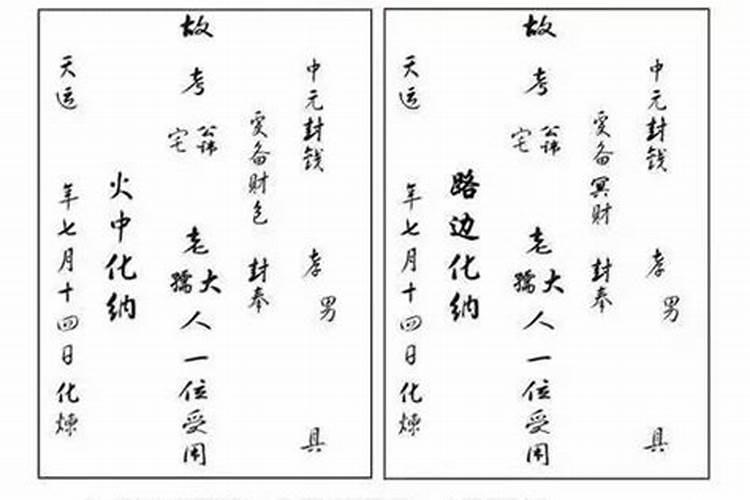 中元封钱 孝男 具
爱备财包 封奉
故考公讳宅 老大孺人一位受用
火中化纳
天运 年七月十四日化炼
中元封钱 孝男 具
爱备冥财 封奉
故考公讳宅 老大孺人一位受用
路边化纳
天运 年七月十四日化炼